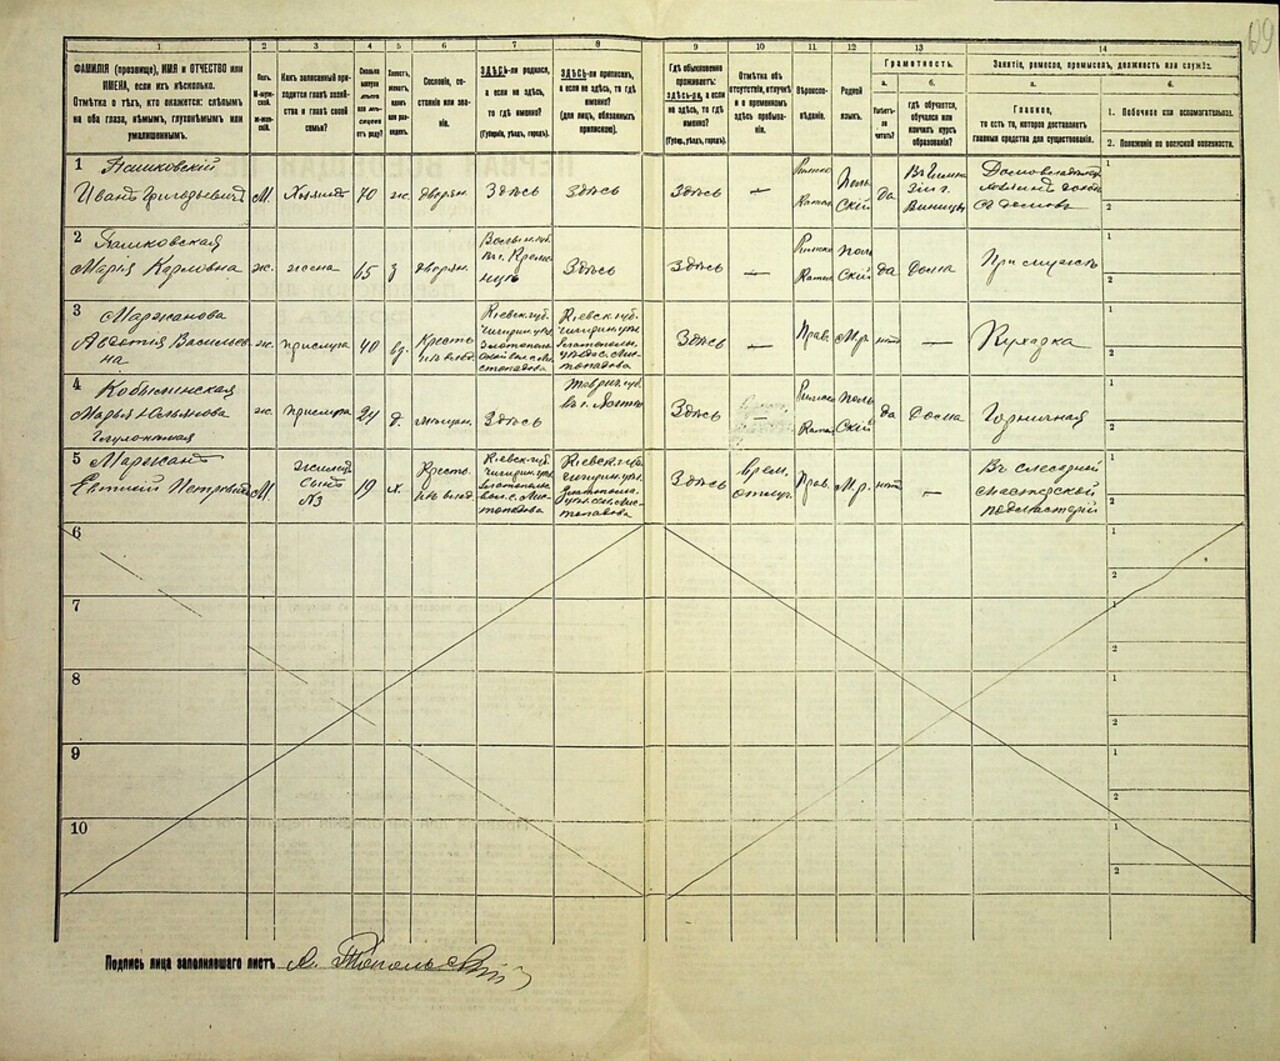 109
1 2 3 4 5 6 7 8 9 10 11 12 13 14
ФАМИЛІЯ (прозвище), ИМЯ и ОТЧЕСТВО или
ИМЕНА, если ихъ нѣсколько.
Отмѣтка о тѣхъ, кто окажется: слѣпымъ
на оба глаза, нѣмымъ, глухонѣмымъ или
умалишеннымъ.
Полъ.
М-муж-
ской.
Ж-жен-
скій.
Какъ записанный при-
ходится главѣ хозяй-
ства и главѣ своей
семьи?
Сколько
минуло
лѣтъ
или мѣ-
сяцевъ
отъ роду?
Холостъ,
женатъ,
вдовъ
или раз-
веденъ.
Сословіе, со-
стояніе или зва-
ніе.
ЗДѢСЬ-ли родился,
а если не здѣсь,
то гдѣ именно?
(Губернія, уѣздъ, городъ).
ЗДѢСЬ-ли приписанъ,
а если не здѣсь, то гдѣ
именно?
(для лицъ, обязанныхъ
припискою).
Гдѣ обыкновенно
проживаетъ:
здѣсь-ли, а если
не здѣсь, то гдѣ
именно?
(Губер., уѣздъ, городъ).
Отмѣтка объ
отсутствіи, отлучкѣ
и о временномъ
здѣсь пребыва-
ніи.
Вѣроиспо-
вѣданіе.
Родной
языкъ.
Грамотность.
а.
Умѣетъ-
ли
читать?
б.
гдѣ обучается,
обучался или
кончилъ курсъ
образованія?
Занятіе, ремесло, промыселъ, должность или служба.
а.
Главное,
то есть то, которое доставляетъ
главныя средства для существованія.
б.
1. Побочное или вспомогательное.
2. Положеніе по воинской повинности.
1 Пашковскій
Иванъ Григорьевичъ М. Хозяинъ 70 ж. дворян. Здѣсь Здѣсь Здѣсь — Римско Катол. Поль Скій да Въ Гимна зіи г. Виницы Домовладѣлец
съ домовъ
1
2
2 Пашковская
Марія Карловна ж. жена 65 з дворян. Волын. губ. въ г. Креме нцѣ Здѣсь Здѣсь — Римско Катол. Поль Скій да Дома При мужѣ
1
2
3 Маржанова
Авдотія Васильев
на ж. прислуга 40 вд. Кресть Кіевск. губ. Чигирин. уѣз. Златополь
Кіевск. губ. Чигирин. уѣз. Златополь Здѣсь — Прав. М.р. нѣт — Кухарка
1
2
4 Кобылинская
Марья Юльянова
ж. прислуга 24 д. мѣщан. Здѣсь Таврич. губ. въ г. Здѣсь — Римско Катол. Поль Скій да Дома Горничная
1
2
5 Маржанъ
Евтихій Петровичъ М. 
сынъ
№3 19 х. Кресть. Кіевск. губ. Чигирин. уѣз. Златополь
Кіевск. губ. Чигирин. уѣз. Здѣсь Врем. отлуч. Прав. М.р. нѣт — Въ слесарной
мастерской
подмастерій
1
2
6 1
2
7 1
2
8 1
2
9 1
2
10 1
2
Подпись лица заполнявшаго листъ А. Топольскій